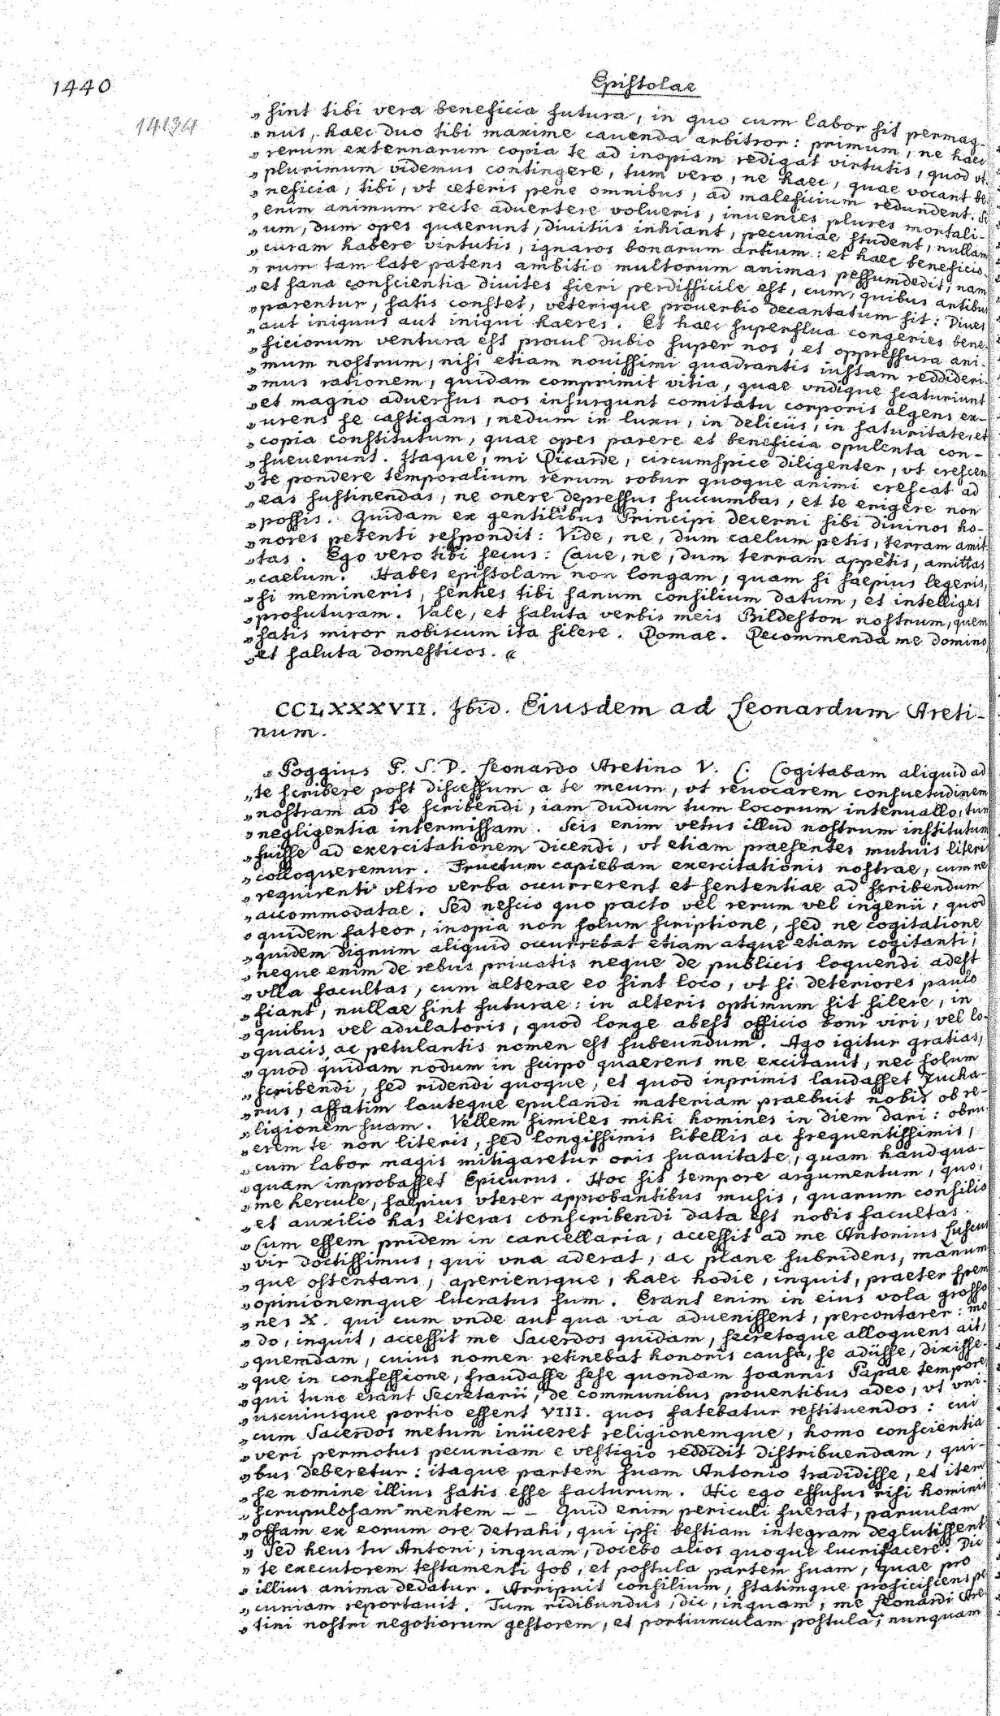 1440
Epistolae
14134
„ sint tibi vera beneficia futura, in quo cum labor sit permag-
„ nus, haec duo tibi maxime cauenda arbitror: primum, ne haec
„ rerum externarum copia te ad inopiam redigat virtutis, quod vt
„ plurimum videmus contingere, tum vero, ne haec, quae vocant be
„ neficia, tibi, vt ceteris pene omnibus, ad maleficium redundent. Si
„ enim animum recte aduertere volueris, inuenies plures mortali-
„ um, dum opes quaerunt, diuitiis inhiant, pecuniae student, nullam
„ curam habere virtutis, ignaros bonarum artium: et haec beneficio
„ rum tam late patens ambitio multorum animas pessumdedit, nam
„ et sana conscientia diuites fieri perdifficile est, cum, quibus artibus
„ parentur, satis constet, veterique prouerbio decantatum sit: Diues
„ aut iniquus aut iniqui haeres. Et haec superflua congeries bene
„ ficiorum ventura est procul dubio super nos, et oppressura ani-
„ mum nostrum, nisi etiam nouissimi quadrantis iustam reddideri
„ mus rationem, quidam comprimit vitia, quae vndique scaturiunt
„ et magno aduersus nos insurgunt comitatu corporis algens ex-
„ urens se castigans, nedum in luxu, in deliciis, in saturitate, et
„ copia constitutum, quae opes parere et beneficia opulenta con-
„ sueuerunt. Itaque, mi Ricarde, circumspice diligenter, vt crescen
„ te pondere temporalium rerum robur quoque animi crescat ad
„ eas sustinendas, ne onere depressus succumbas, et te erigere non
„ possis. Quidam ex gentilibus Principi decerni sibi diuinos ho-
„ nores petenti respondit: Vide, ne, dum caelum petis, terram amit
„ tas. Ego vero tibi secus: Caue, ne, dum terram appetis, amittas
„ caelum. Habes epistolam non longam, quam si saepius legeris,
„ si memineris, senties tibi sanum consilium datum, et intelliges
„ profuturam. Vale, et saluta verbis meis Bildeston nostrum, quem
„ satis miror nobiscum ita silere. Romae. Recommenda me domino
„ et saluta domesticos. «
CCLXXXVII. Ibid. Eiusdem ad Leonardum Areti-
num.
„ Poggius P. S. D. Leonardo Aretino V. C. Cogitabam aliquid ad
„ te scribere post discessum a te meum, vt reuocarem consuetudinem
„ nostram ad te scribendi, iam dudum tum locorum interuallo, tum
„ negligentia intermissam. Scis enim vetus illud nostrum institutum
„ fuisse ad exercitationem dicendi, vt etiam praesentes mutuis literis
„ colloqueremur. Fructum capiebam exercitationis nostrae, cum ne
„ requirenti vltro verba occurrerent et sententiae ad scribendum
„ accommodatae. Sed nescio quo pacto vel rerum vel ingenii, quod
„ quidem fateor, inopia non solum scriptione, sed ne cogitatione
„ quidem dignum aliquid occurrebat etiam atque etiam cogitanti;
„ neque enim de rebus priuatis neque de publicis loquendi adest
„ vlla facultas, cum alterae eo sint loco, vt si deteriores paulo
„ fiant, nullae sint futurae: in alteris optimum sit silere, in
„ quibus vel adulatoris, quod longe abest officio boni viri, vel lo-
„ quacis ac petulantis nomen est subeundum. Ago igitur gratias,
„ quod quidam nodum in scirpo quaerens me excitauit, nec solum
„ scribendi, sed ridendi quoque, et quod inprimis laudasset Zucha-
„ rus, affatim lauteque epulandi materiam praebuit nobis ob re-
„ ligionem suam. Vellem similes mihi homines in diem dari: obru
„ erem te non literis, sed longissimis libellis ac frequentissimis,
„ cum labor magis mitigaretur oris suauitate, quam haudqua-
„ quam improbasset Epicurus. Hoc sit tempore argumentum, quo,
„ me hercule, saepius vterer approbantibus musis, quarum consilio
„ et auxilio has literas conscribendi data est nobis facultas.
„ Cum essem pridem in cancellaria, accessit ad me Antonius Luscus
„ vir doctissimus, qui vna aderat, ac plane subridens, manum
„ que ostentans, aperiensque, haec hodie, inquit, praeter spem
„ opinionemque lucratus sum. Erant enim in eius vola grosso
„ nes X. qui cum vnde aut qua via aduenissent, percontarer: mo
„ do, inquit, accessit me Sacerdos quidam, secretoque alloquens ait,
„ quemdam, cuius nomen retinebat honoris causa, se adiisse, dixisse-
„ que in confessione, fraudasse sese quondam Joannis Papae tempore
„ qui tunc erant Secretarii, de communibus prouentibus adeo, vt vni-
„ uscuiusque portio essent VIII. quos fatebatur restituendos: cui
„ cum Sacerdos metum iniiceret religionemque, homo conscientia
„ veri permotus pecuniam e vestigio reddidit distribuendam, qui-
„ bus deberetur: itaque partem suam Antonio tradidisse, et item
„ se nomine illius satis esse facturum. Hic ego effusus risi hominis
„ scrupulosam mentem - - Quid enim periculi fuerat, paruulam
„ offam ex eorum ore detrahi, qui ipsi bestiam integram deglutissent
„ Sed heus tu Antoni, inquam, docebo alios quoque lucrifacere: Dic
„ te executorem testamenti Job, et postula partem suam, quae pro
„ illius anima dedatur. Arripuit consilium, statimque proficiscens pe
„ cuniam reportauit. Tum ridibundus, dic, inquam, me Leonardi Are
„ tini nostri negotiorum gestorem, et portiunculam postula; nunquam